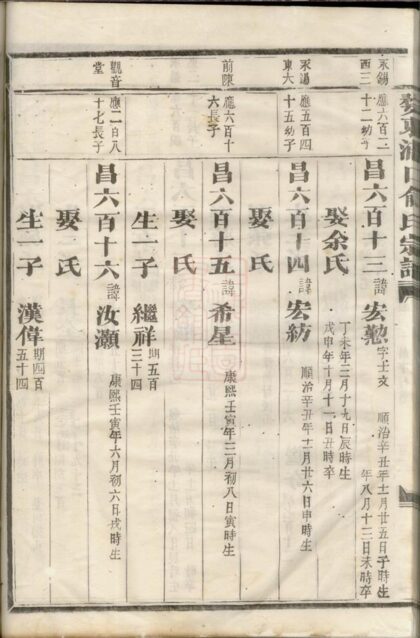 永錫西三
應六百二十二幼子
昌六百十三 諱 宏勳 字士文 順治辛丑年十一月廿五日子時生
年八月十三日未時卒
娶余氏 丁未年三月十九日辰時生
戊申年十月十一日丑時卒
永錫東大
應五百四十五幼子
昌六百十四 諱 宏紡 順治辛丑年十二月廿六日申時生
娶 氏
前陳
應六百十六長子
昌六百十五 諱 希星 康熙壬寅年三月初八日寅時生
娶 氏
生一子 繼祥 期五百三十四
觀音堂
應二百八十七長子
昌六百十六 諱 汝灝 康熙壬寅年六月初六日戌時生
娶 氏
生一子 漢偉 期四百五十四